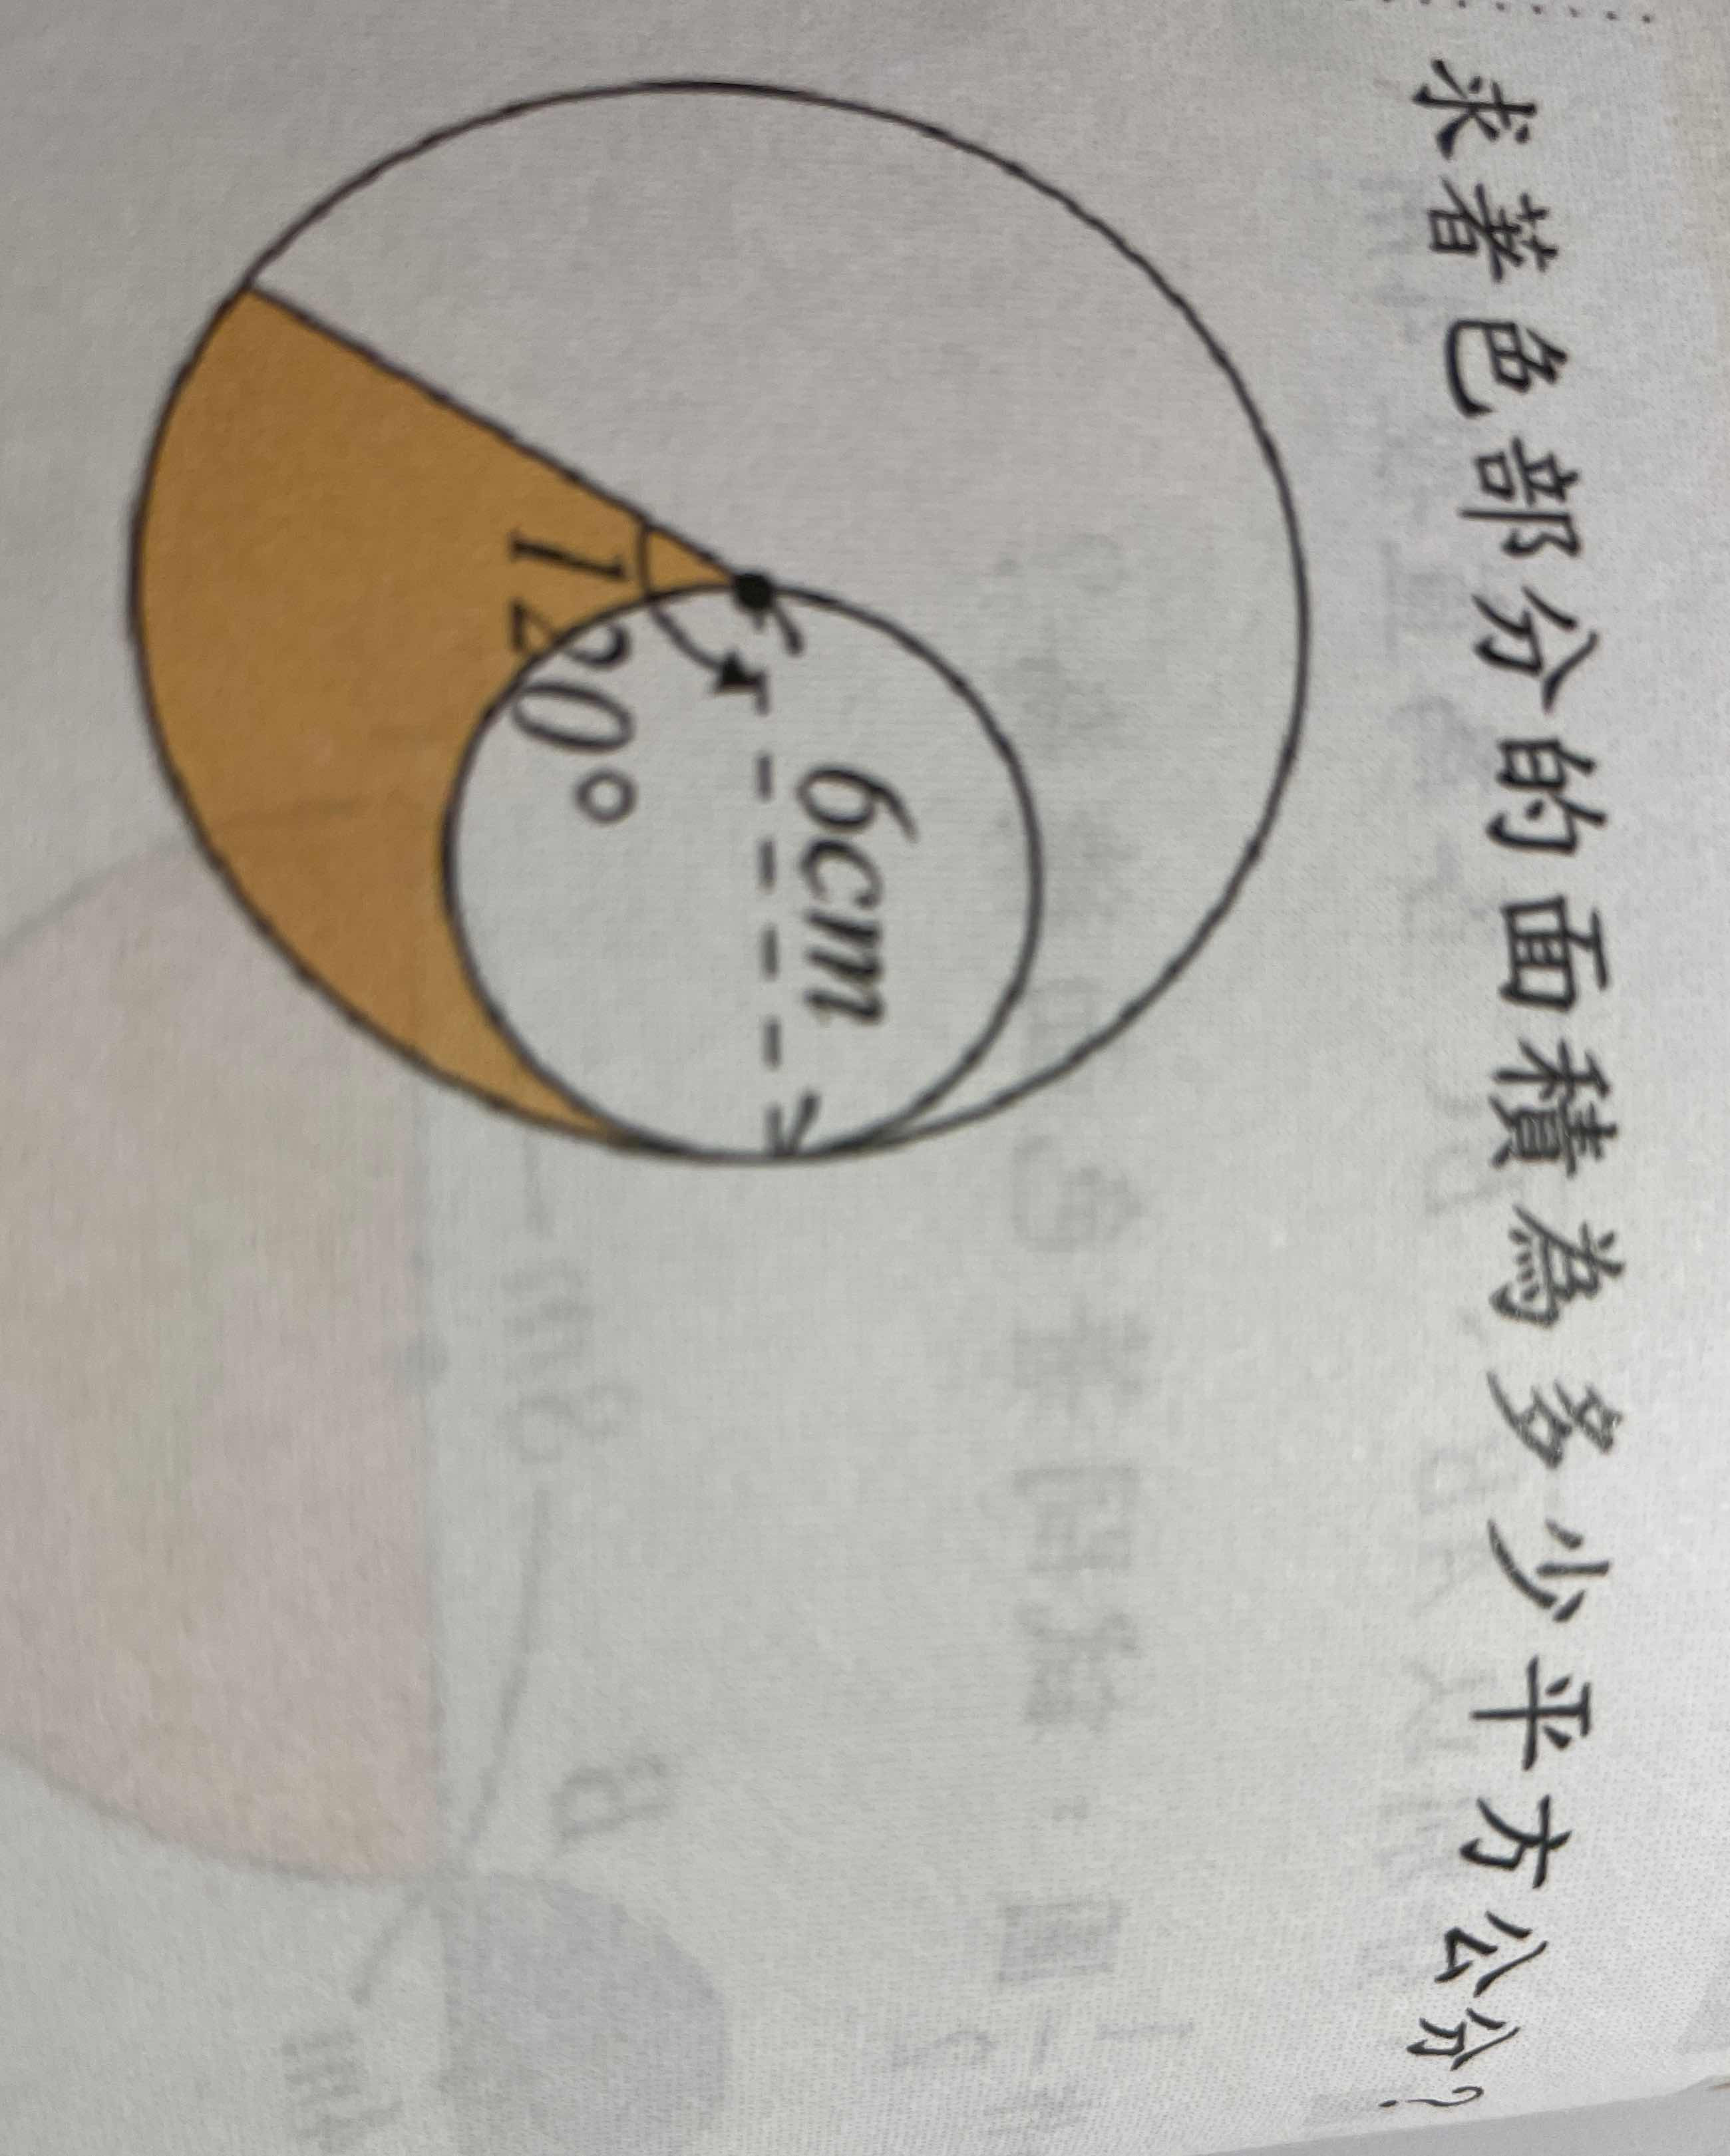 求著色部分的面積為多少平方公分？
6cm
120°